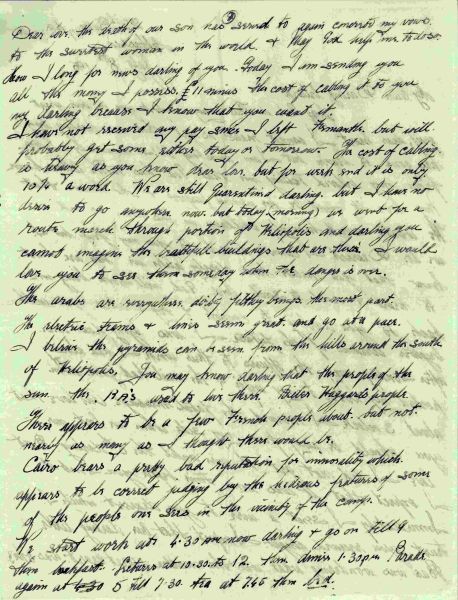 ③
Dear one the birth of our son has served to again concrete my vows
to the sweetest woman in the world & may God help me to do so.
How I long for news darling of you. Today I am sending you
all the money I possess, £11 minus the cost of cabling it to you
my darling because I know that you want it.
I have not received any pay since I left Fremantle but will
probably get some either today or tomorrow. The cost of cabling
is heavy as you know dear love, but for week end it is only
a word. We are still Quarantined darling, but I have no
desire to go anywhere now. but today (morning) we went for a
route march through portion of Heliopolis and darling you
cannot imagine the beautiful buildings that are there. I would
love you to see them someday when the danger is over.
The arabs are everywhere, dirty filthy beings the most part.
The electric trams & lines seem great and go at a pace.
I believe the pyramids can be seen from the hills around the south
of Heliopolis. You may know darling that the people of the
sun. the RA's used to live there. Rider Haggard's people.
There appears to be a few French people about. but not
nearly as many as I thought there would be.
Cairo bears a pretty bad reputation for immorality which
appears to be correct judging by the hideous features of some
of the people one sees in the vicinity of the camp.
We start work at 4.30 am now darling & go on till 9
then breakfast. Lectures at 10.30 to 12. then dinner 1.30pm Parade
again at 5 till 7.30. tea at 7.45 then bed.